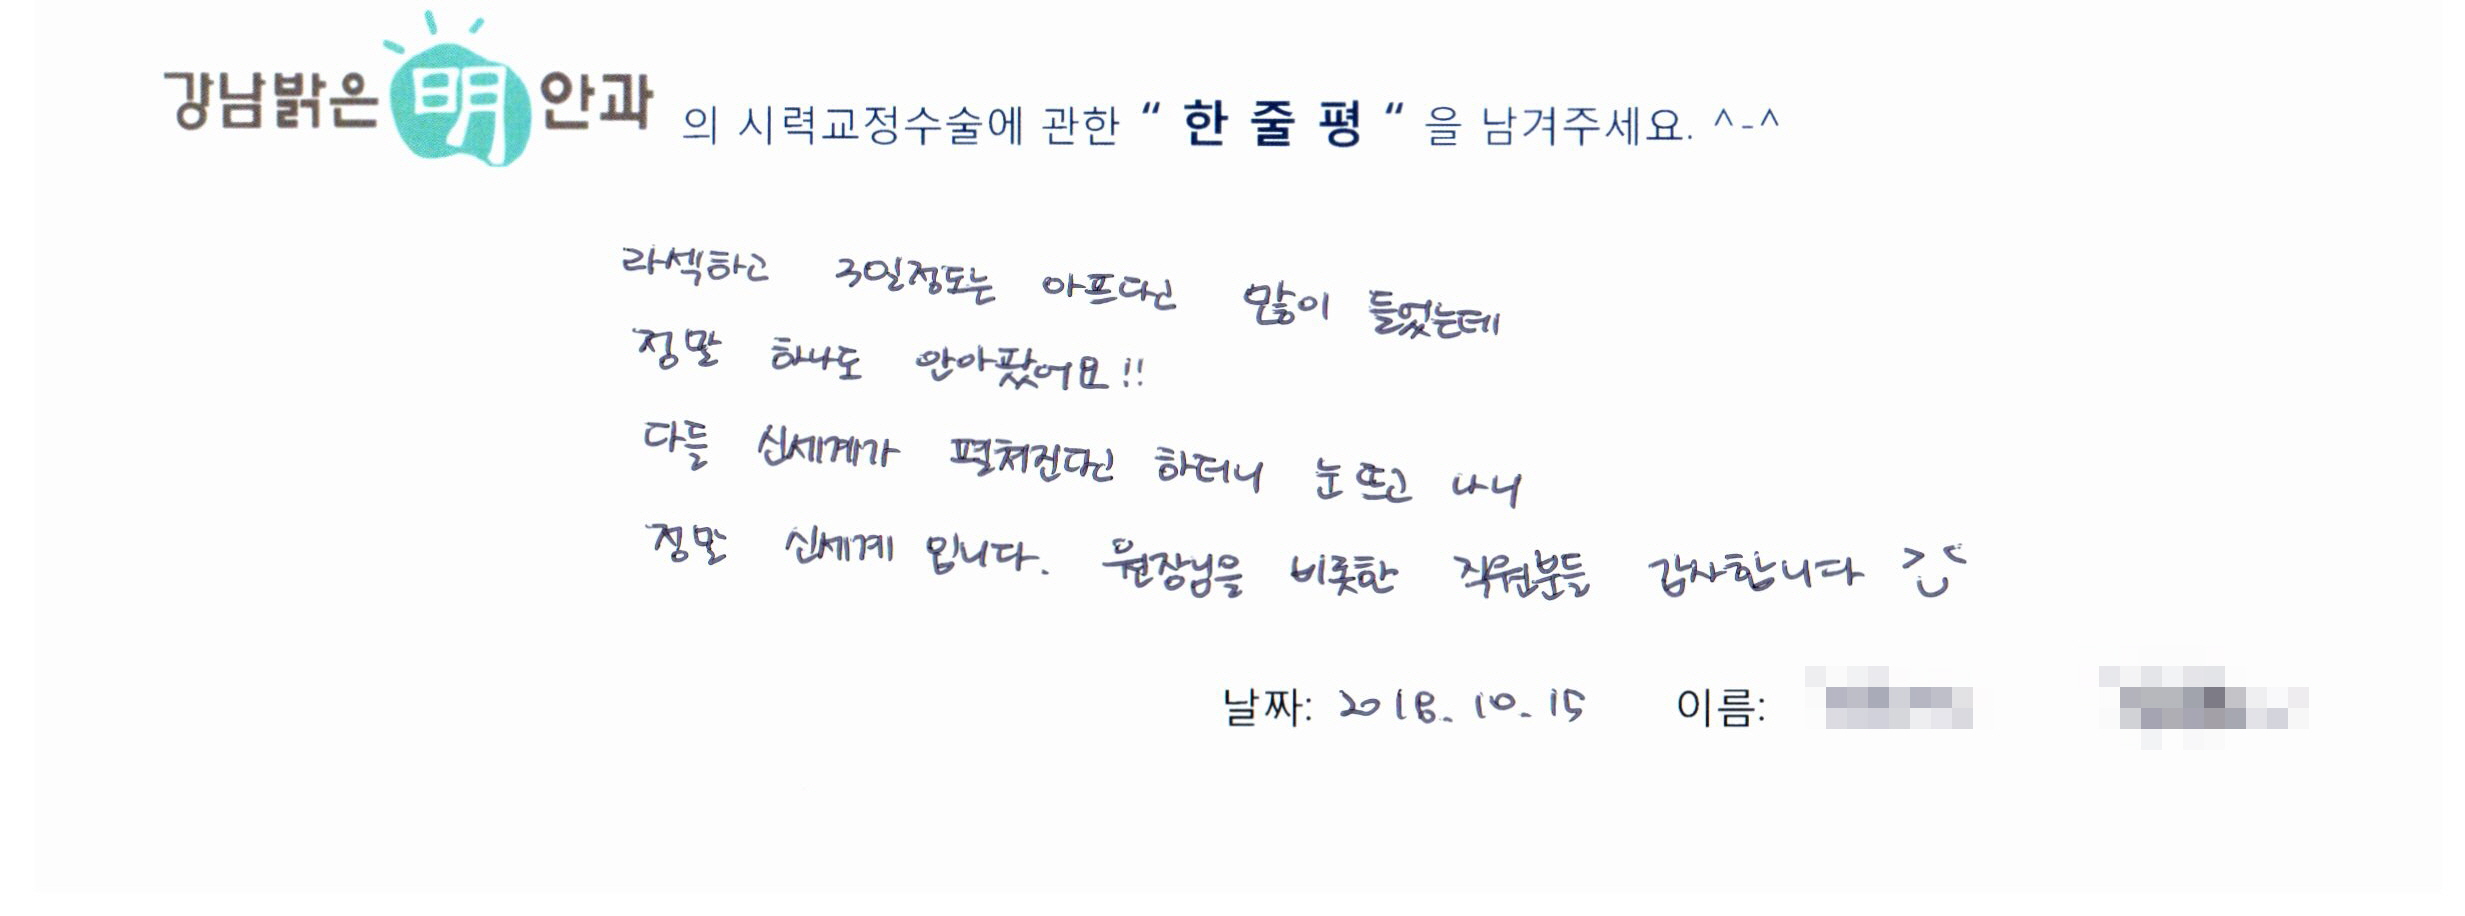 강남밝은 明 안과 의 시력교정수술에 관한 “ 한 줄 평 “ 을 남겨주세요. ^-^
라섹하고 3일정도는 아프다닌 많이 들었는데
정말 하나도 안아팠어요!!
다들 신세계가 펼쳐진다닌 하더니 눈 뜨고 나니
정말 신세계 입니다. 원장님을 비롯한 직원분들 감사합니다
날짜: 2018. 10. 15 이름: